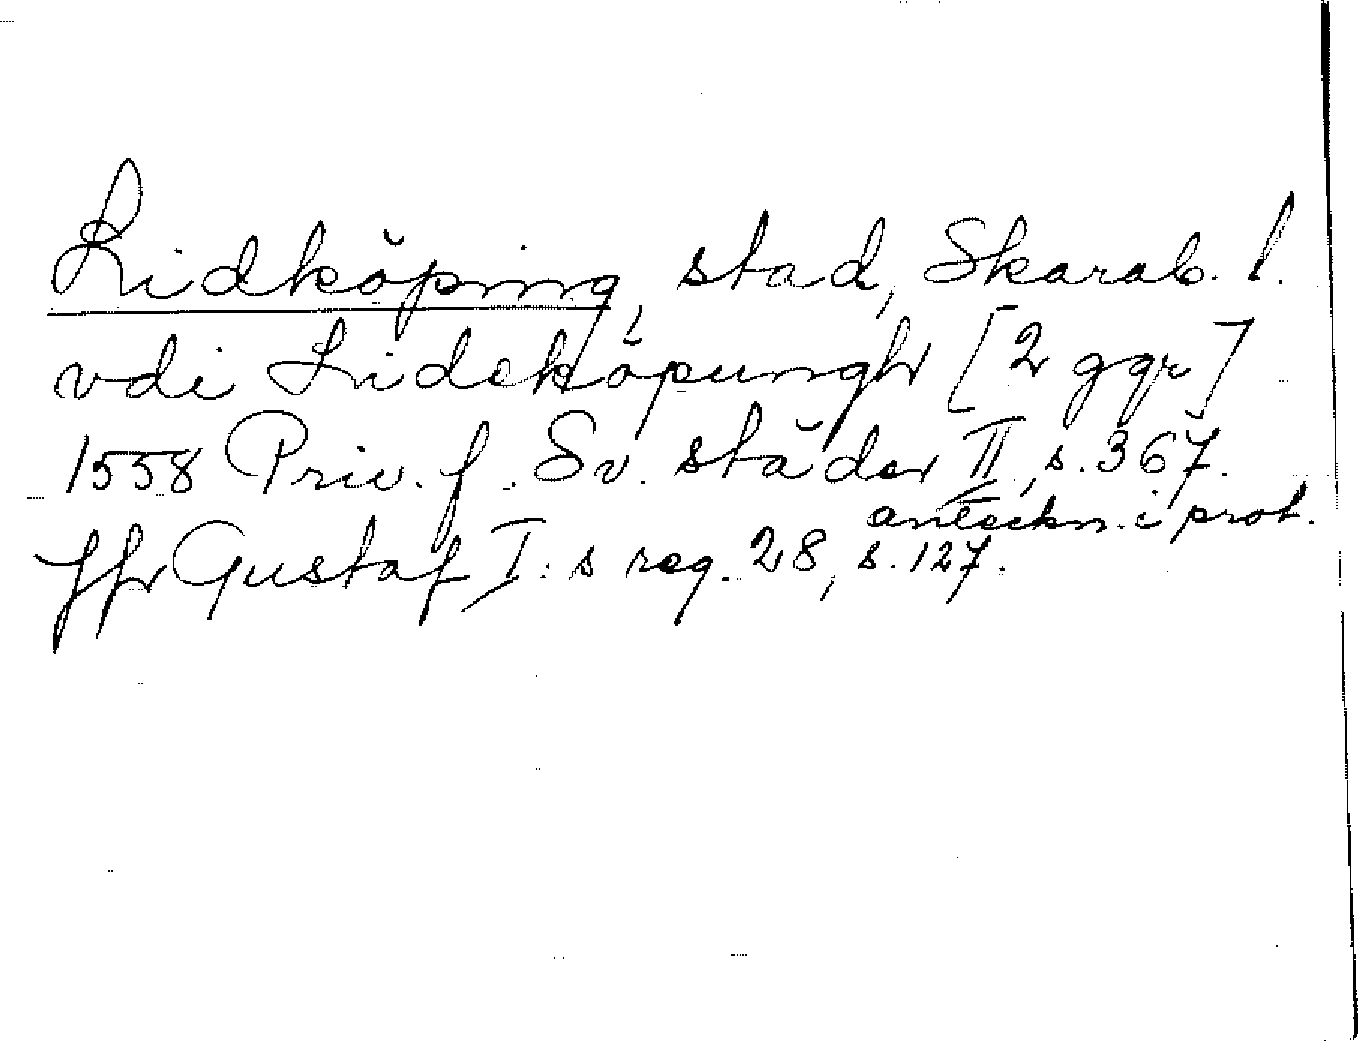 Lidköping, stad, Skarab. l.
vdi Lideköpungh [2 ggr]
1558 Priv. f. Sv. städer II, s. 367.
anteckn. i prot.
ffr Gustaf I:s reg. 28, s. 127.